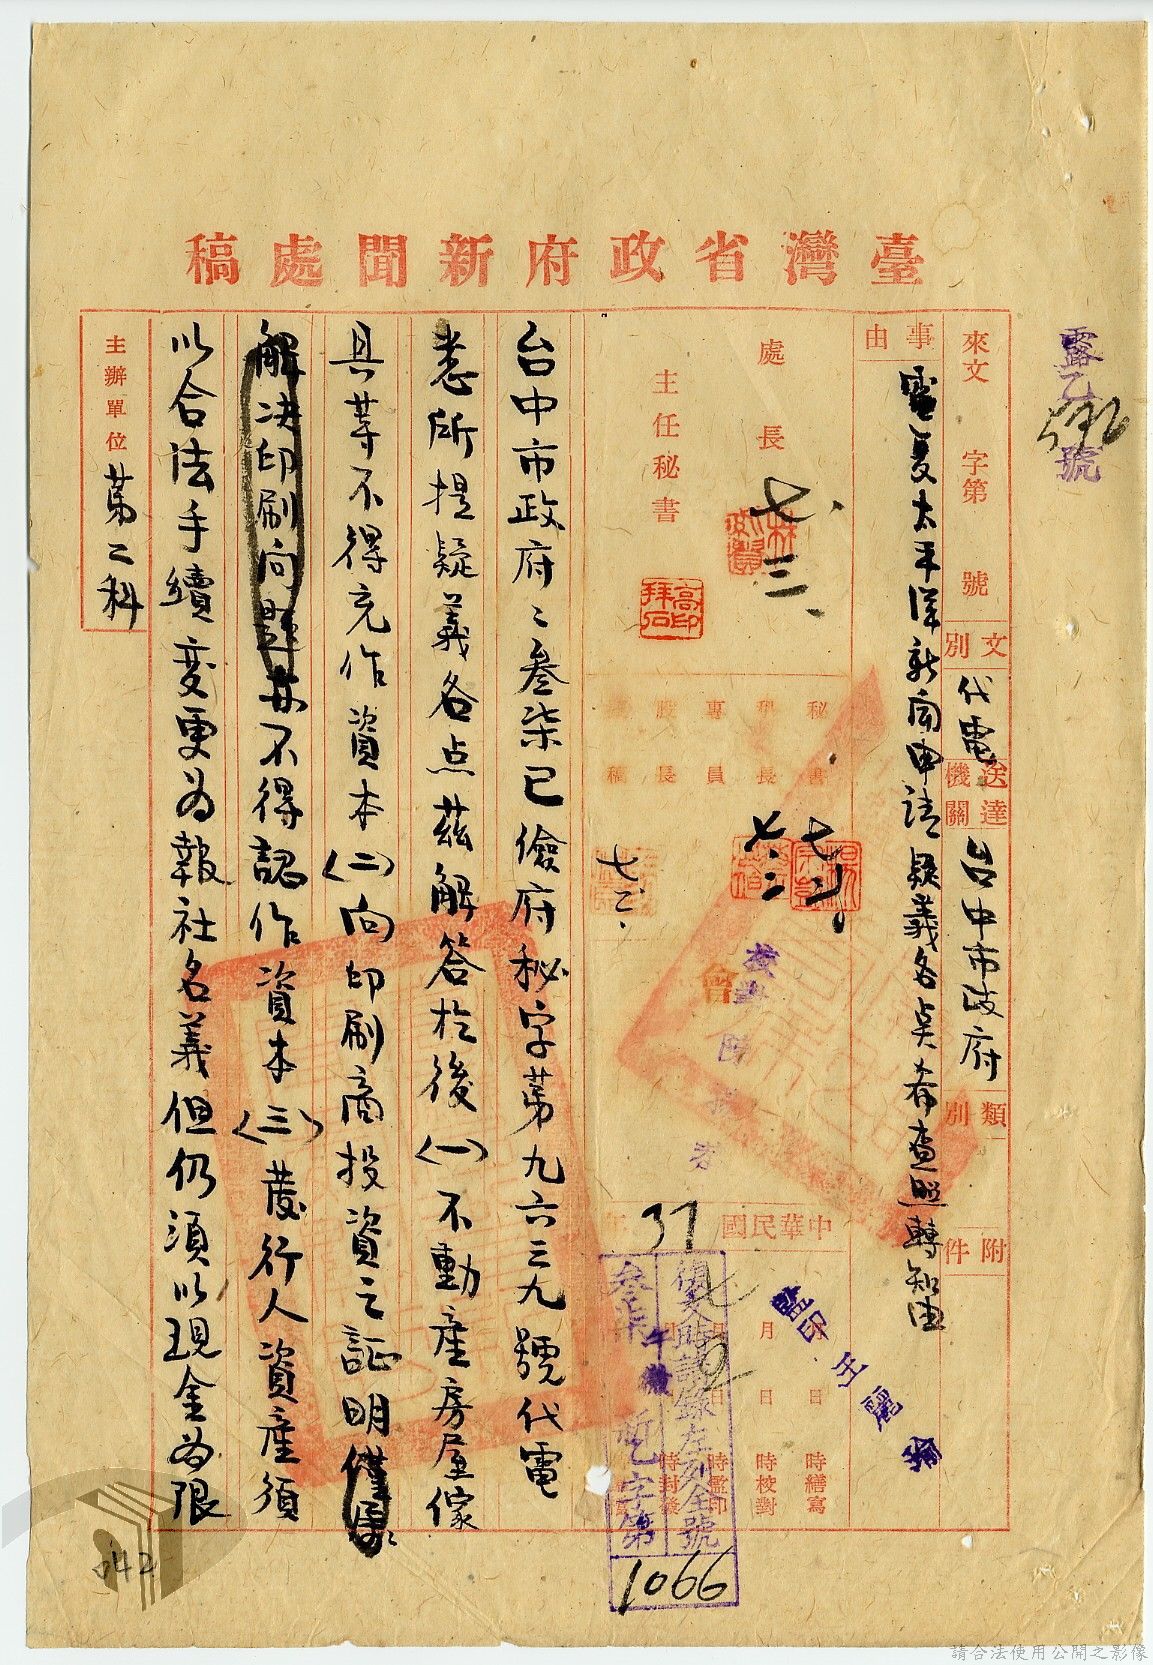 臺灣省政府新聞處稿
露乙 號
596
來文 字第 號
文別
代電
送達機關
台中市政府
類別
附件
事由
電复太平洋新聞申請疑義各点希查照轉知由
處長
七、三、
主任秘書
高印拜石
秘書
科長
專員
股長
七、二
七、二、
會
校對
中華民國 37 年
月 日 時繕寫
月 日 時校對
月 日 時蓋印
時封發
發文時請錄左列全號
叁柒 午 乙字第
1066
台中市政府：叁柒已儉府秘字第九六三九號代電
悉所提疑義各点茲解答於後（一）不動產房屋傢
具等不得充作資本（二）向印刷商投資之証明僅屬
解决印刷问題并不得認作資本（三）發行人資產須
以合法手續変更為報社名義但仍須以現金為限
主辦單位
第二科
042
請合法使用公開之影像